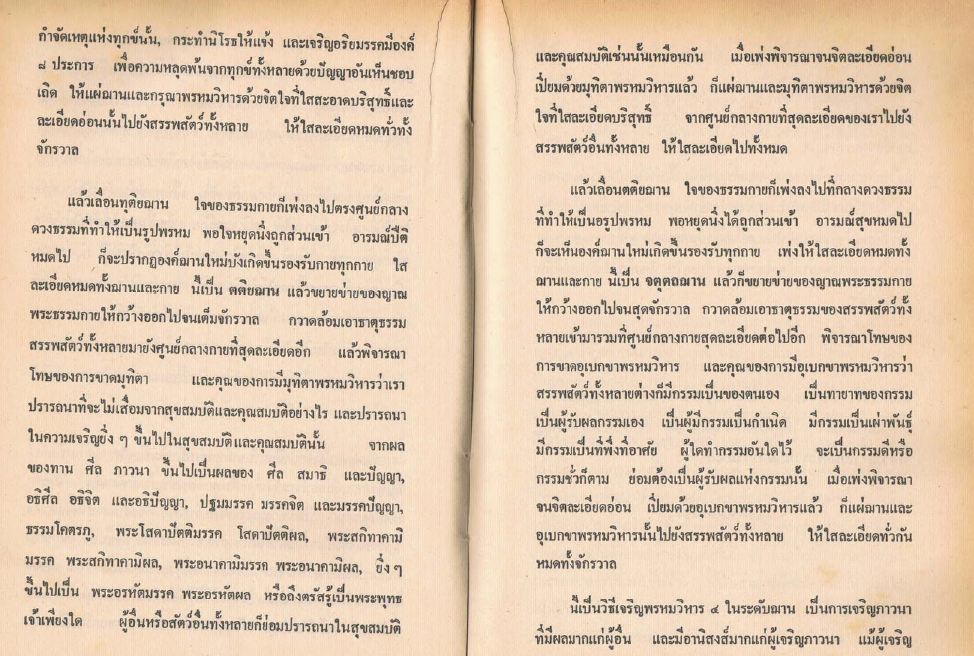 กำจัดเหตุแห่งทุกข์นั้น, กระทำนิโรธให้แจ้ง และเจริญอริยมรรคมีองค์
๘ ประการ เพื่อความหลุดพ้นจากทุกข์ทั้งหลายด้วยปัญญาอันเห็นชอบ
เถิด ให้แผ่ฌานและกรุณาพรหมวิหารด้วยจิตใจที่ใสสะอาดบริสุทธิ์และ
ละเอียดอ่อนนั้นไปยังสรรพสัตว์ทั้งหลาย ให้ใสละเอียดหมดทั่วทั้ง
จักรวาล
แล้วเลื่อนทุติยฌาน ใจของธรรมกายก็เพ่งลงไปตรงศูนย์กลาง
ดวงธรรมที่ทำให้เป็นรูปพรหม พอใจหยุดนิ่งถูกส่วนเข้า อารมณ์ปีติ
หมดไป ก็จะปรากฏองค์ฌานใหม่บังเกิดขึ้นรองรับกายทุกกาย ใส
ละเอียดหมดทั้งฌานและกาย นี้เป็น ตติยฌาน แล้วขยายข่ายของญาณ
พระธรรมกายให้กว้างออกไปจนเต็มจักรวาล กวาดล้อมเอาธาตุธรรม
สรรพสัตว์ทั้งหลายมายังศูนย์กลางกายที่สุดละเอียดอีก แล้วพิจารณา
โทษของการขาดมุทิตา และคุณของการมีมุทิตาพรหมวิหารว่าเรา
ปรารถนาที่จะไม่เสื่อมจากสุขสมบัติและคุณสมบัติอย่างไร และปรารถนา
ในความเจริญยิ่ง ๆ ขึ้นไปในสุขสมบัติและคุณสมบัตินั้น จากผล
ของทาน ศีล ภาวนา ขึ้นไปเป็นผลของ ศีล สมาธิ และปัญญา,
อธิศีล อธิจิต และอธิปัญญา, ปฐมมรรค มรรคจิต และมรรคปัญญา,
ธรรมโคตรภู, พระโสดาปัตติมรรค โสดาปัตติผล, พระสกิทาคามิ
มรรค พระสกิทาคามิผล, พระอนาคามิมรรค พระอนาคามิผล, ยิ่ง ๆ
ขึ้นไปเป็น พระอรหัตมรรค พระอรหัตผล หรือถึงตรัสรู้เป็นพระพุทธ
เจ้าเพียงใด ผู้อื่นหรือสัตว์อื่นทั้งหลายก็ย่อมปรารถนาในสุขสมบัติ
และคุณสมบัติเช่นนั้นเหมือนกัน เมื่อเพ่งพิจารณาจนจิตละเอียดอ่อน
เปี่ยมด้วยมุทิตาพรหมวิหารแล้ว ก็แผ่ฌานและมุทิตาพรหมวิหารด้วยจิต
ใจที่ใสละเอียดบริสุทธิ์ จากศูนย์กลางกายที่สุดละเอียดของเราไปยัง
สรรพสัตว์อื่นทั้งหลาย ให้ใสละเอียดไปทั้งหมด
แล้วเลื่อนตติยฌาน ใจของธรรมกายก็เพ่งลงไปที่กลางดวงธรรม
ที่ทำให้เป็นอรูปพรหม พอหยุดนิ่งได้ถูกส่วนเข้า อารมณ์สุขหมดไป
ก็จะเห็นองค์ฌานใหม่เกิดขึ้นรองรับทุกกาย เพ่งให้ใสละเอียดหมดทั้ง
ฌานและกาย นี้เป็น จตุตถฌาน แล้วก็ขยายข่ายของญาณพระธรรมกาย
ให้กว้างออกไปจนสุดจักรวาล กวาดล้อมเอาธาตุธรรมของสรรพสัตว์ทั้ง
หลายเข้ามารวมที่ศูนย์กลางกายสุดละเอียดต่อไปอีก พิจารณาโทษของ
การขาดอุเบกขาพรหมวิหาร และคุณของการมีอุเบกขาพรหมวิหารว่า
สรรพสัตว์ทั้งหลายต่างก็มีกรรมเป็นของตนเอง เป็นทายาทของกรรม
เป็นผู้รับผลกรรมเอง เป็นผู้มีกรรมเป็นกำเนิด มีกรรมเป็นเผ่าพันธุ์
มีกรรมเป็นที่พึ่งที่อาศัย ผู้ใดทำกรรมอันใดไว้ จะเป็นกรรมดีหรือ
กรรมชั่วก็ตาม ย่อมต้องเป็นผู้รับผลแห่งกรรมนั้น เมื่อเพ่งพิจารณา
จนจิตละเอียดอ่อน เปี่ยมด้วยอุเบกขาพรหมวิหารแล้ว ก็แผ่ฌานและ
อุเบกขาพรหมวิหารนั้นไปยังสรรพสัตว์ทั้งหลาย ให้ใสละเอียดทั่วกัน
หมดทั้งจักรวาล
นี้เป็นวิธีเจริญพรหมวิหาร ๔ ในระดับฌาน เป็นการเจริญภาวนา
ที่มีผลมากแก่ผู้อื่น และมีอานิสงส์มากแก่ผู้เจริญภาวนา แม้ผู้เจริญ